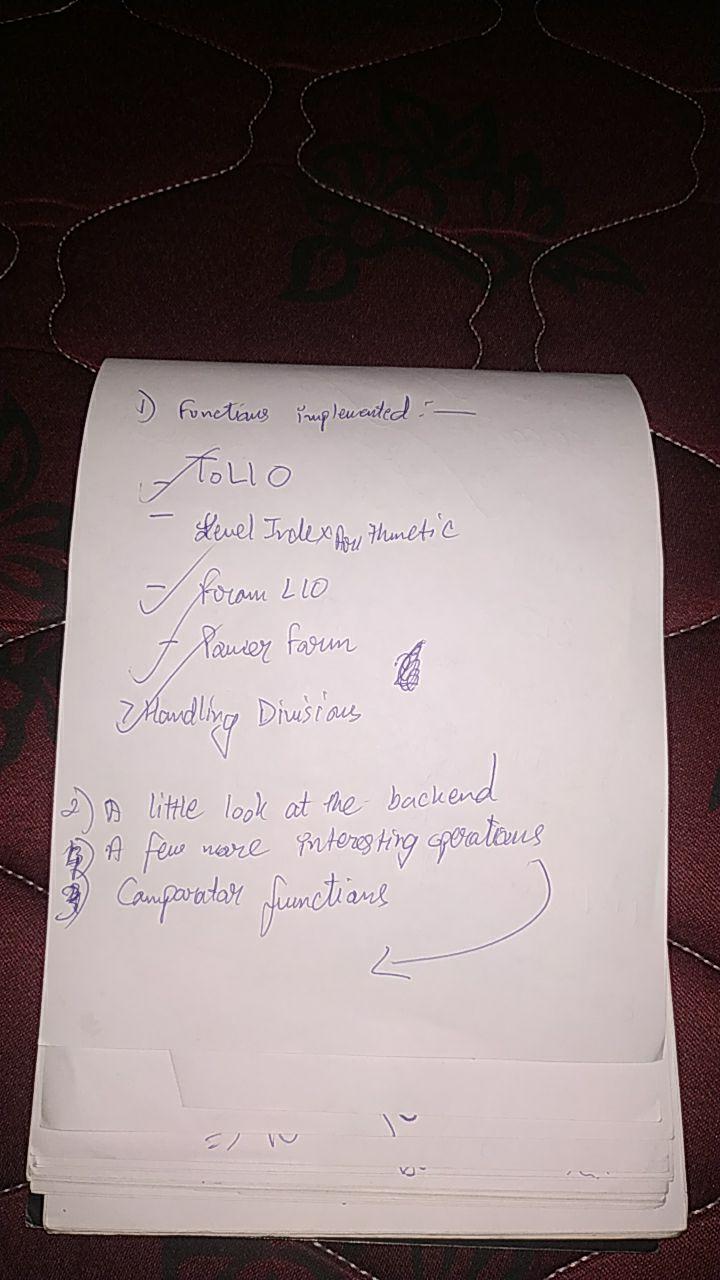 1) Functions implemented :—
- ToLIO
- Level Index Arithmetic
- From LIO
- Power Form
Handling Divisions
2) A little look at the backend
4) A few more interesting operations
3) Comparator functions